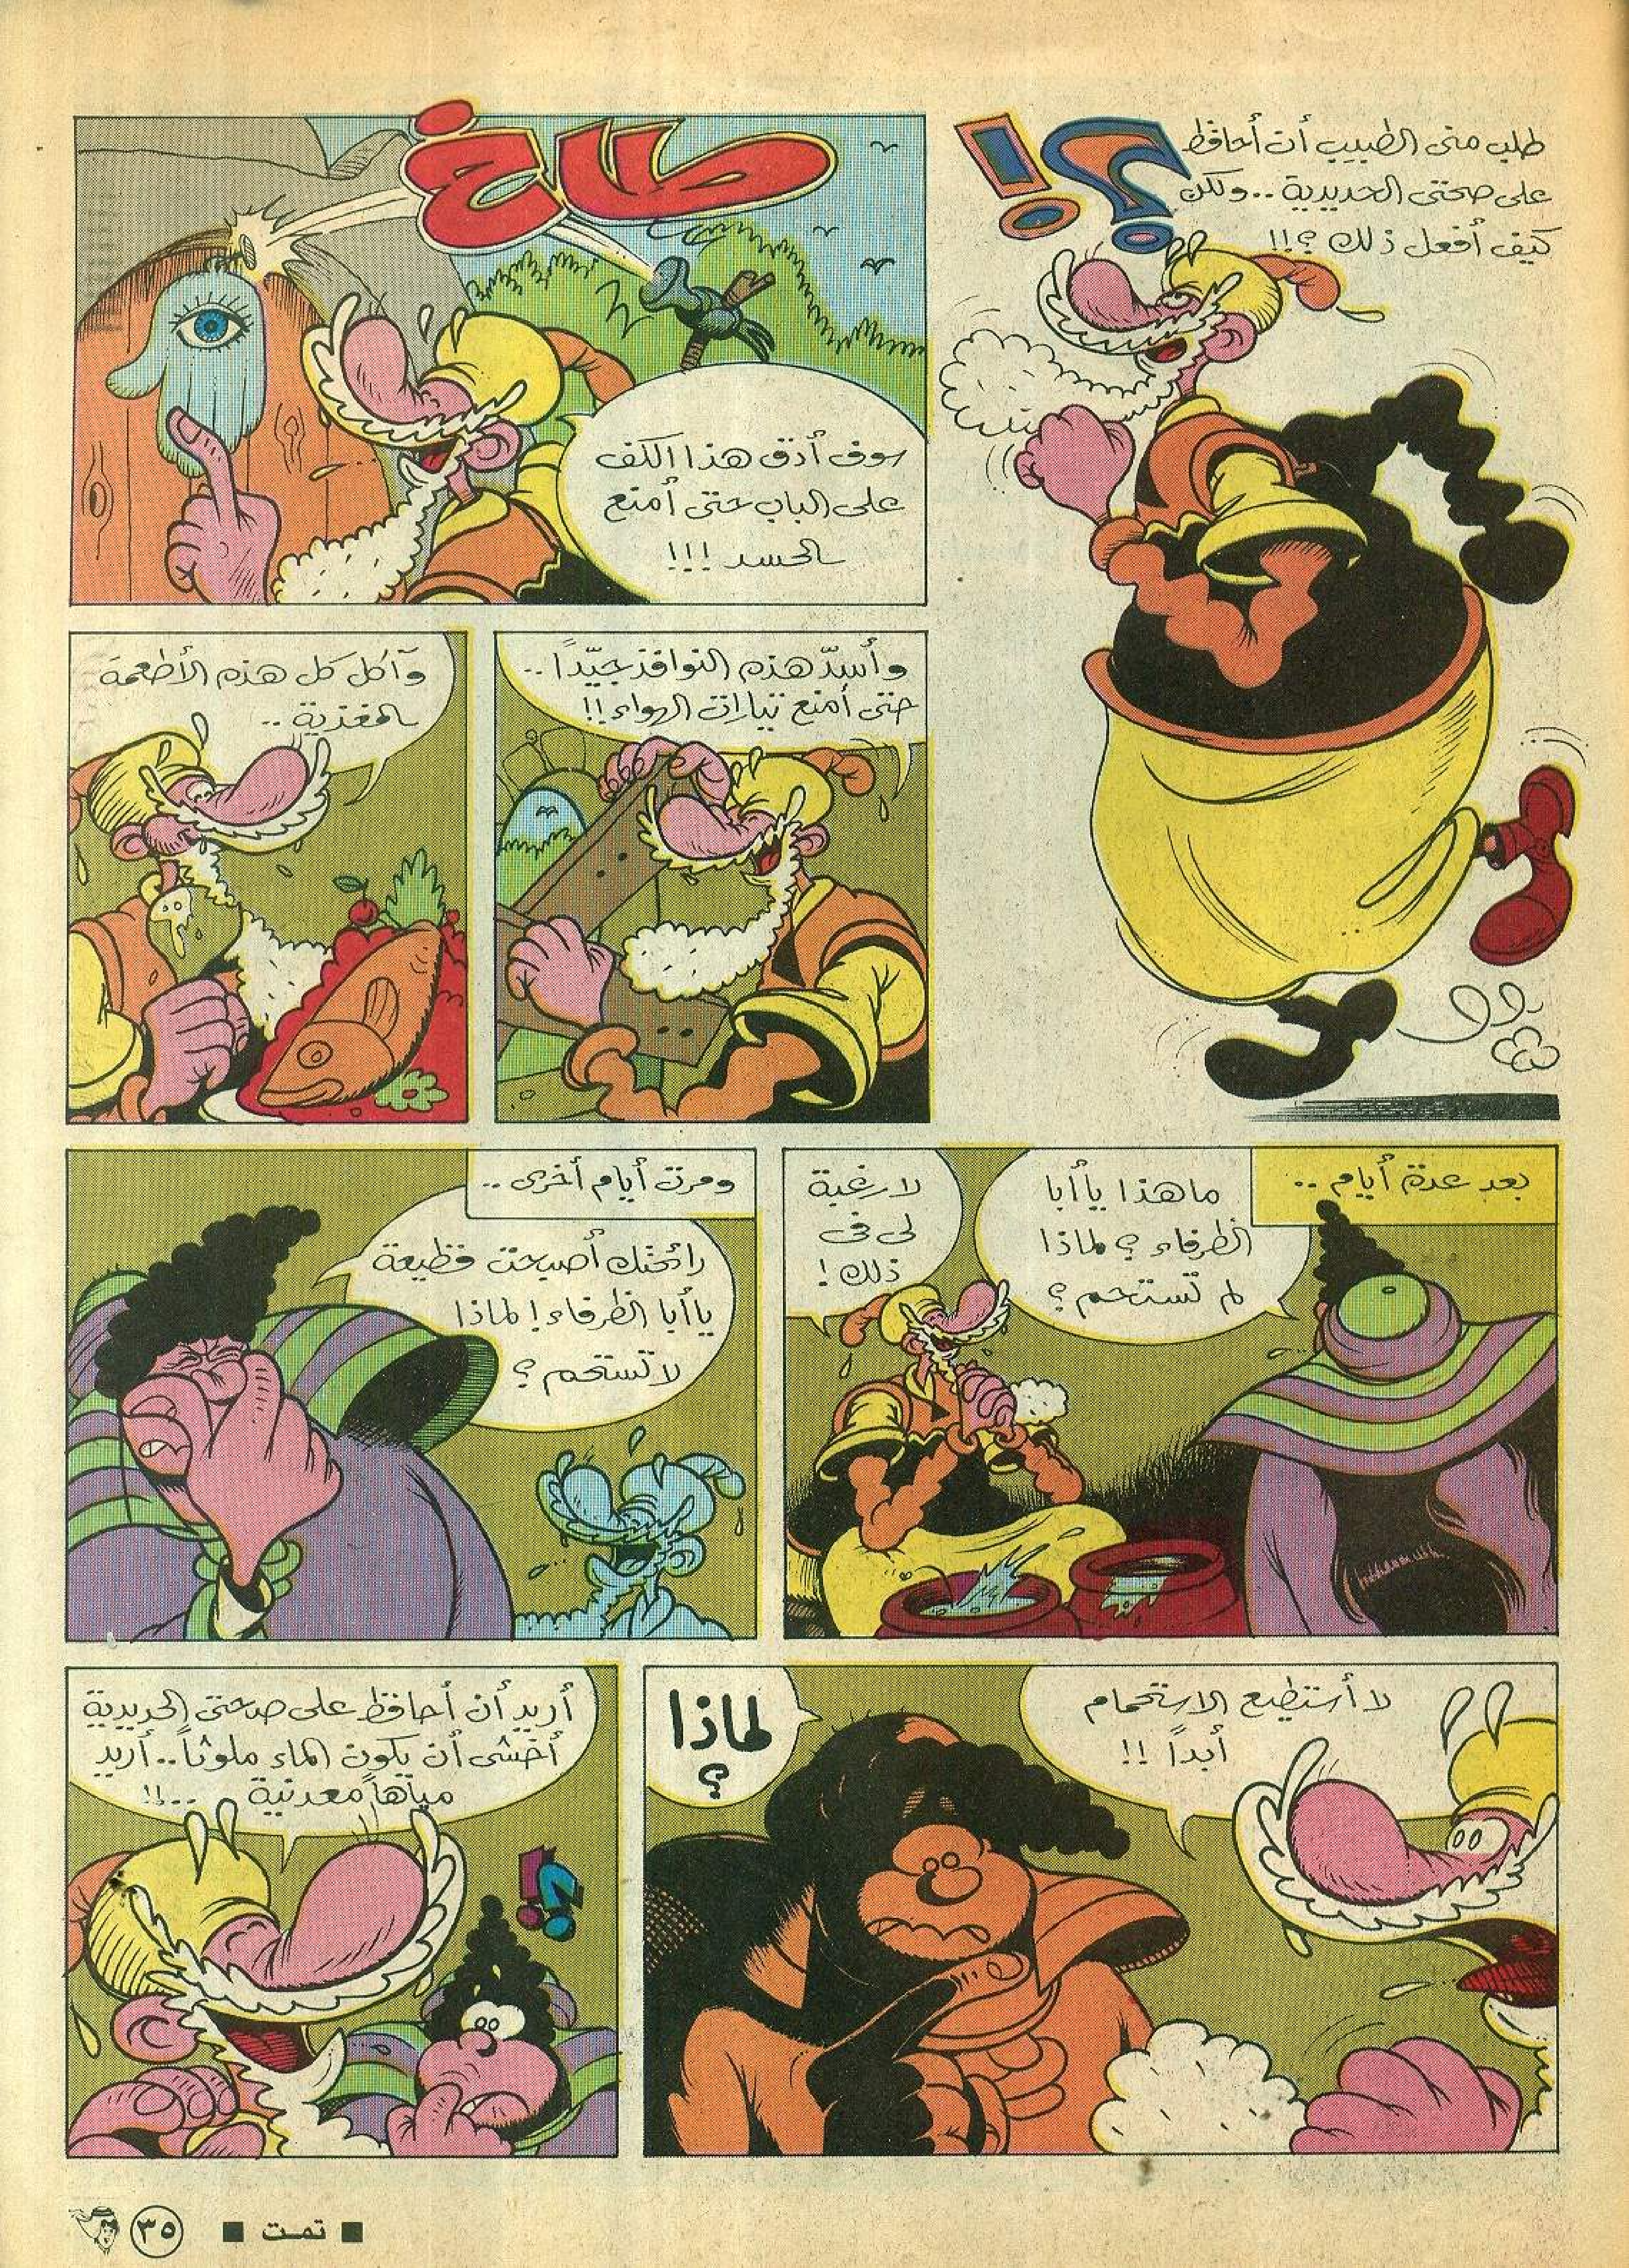 طلب منى الطبيب أن أحافظ
على صحتى الحديدية .. ولكن
كيف أفعل ذلك ؟!!
؟!
طاخ
سوف أدق هذا الكف
على الباب حتى أمنع
الحسد !!!
وأسدّ هذه النوافذ جيّداً ..
حتى أمنع تيارات الهواء !!
وآكل كل هذه الأطعمة
المغذية ..
بعد عدة أيام ..
ما هذا يا أبا
الظرفاء ؟ لماذا
لم تستحم ؟
لا رغبة
لى فى
ذلك !
ومرت أيام أخرى ..
رائحتك أصبحت فظيعة
يا أبا الظرفاء ! لماذا
لا تستحم ؟
لا أستطيع الاستحمام
أبداً !!
لماذا
؟
أريد أن أحافظ على صحتى الحديدية
أخشى أن يكون الماء ملوثاً .. أريد
مياهاً معدنية ...!!
؟!
■ تمت ■
٣٥